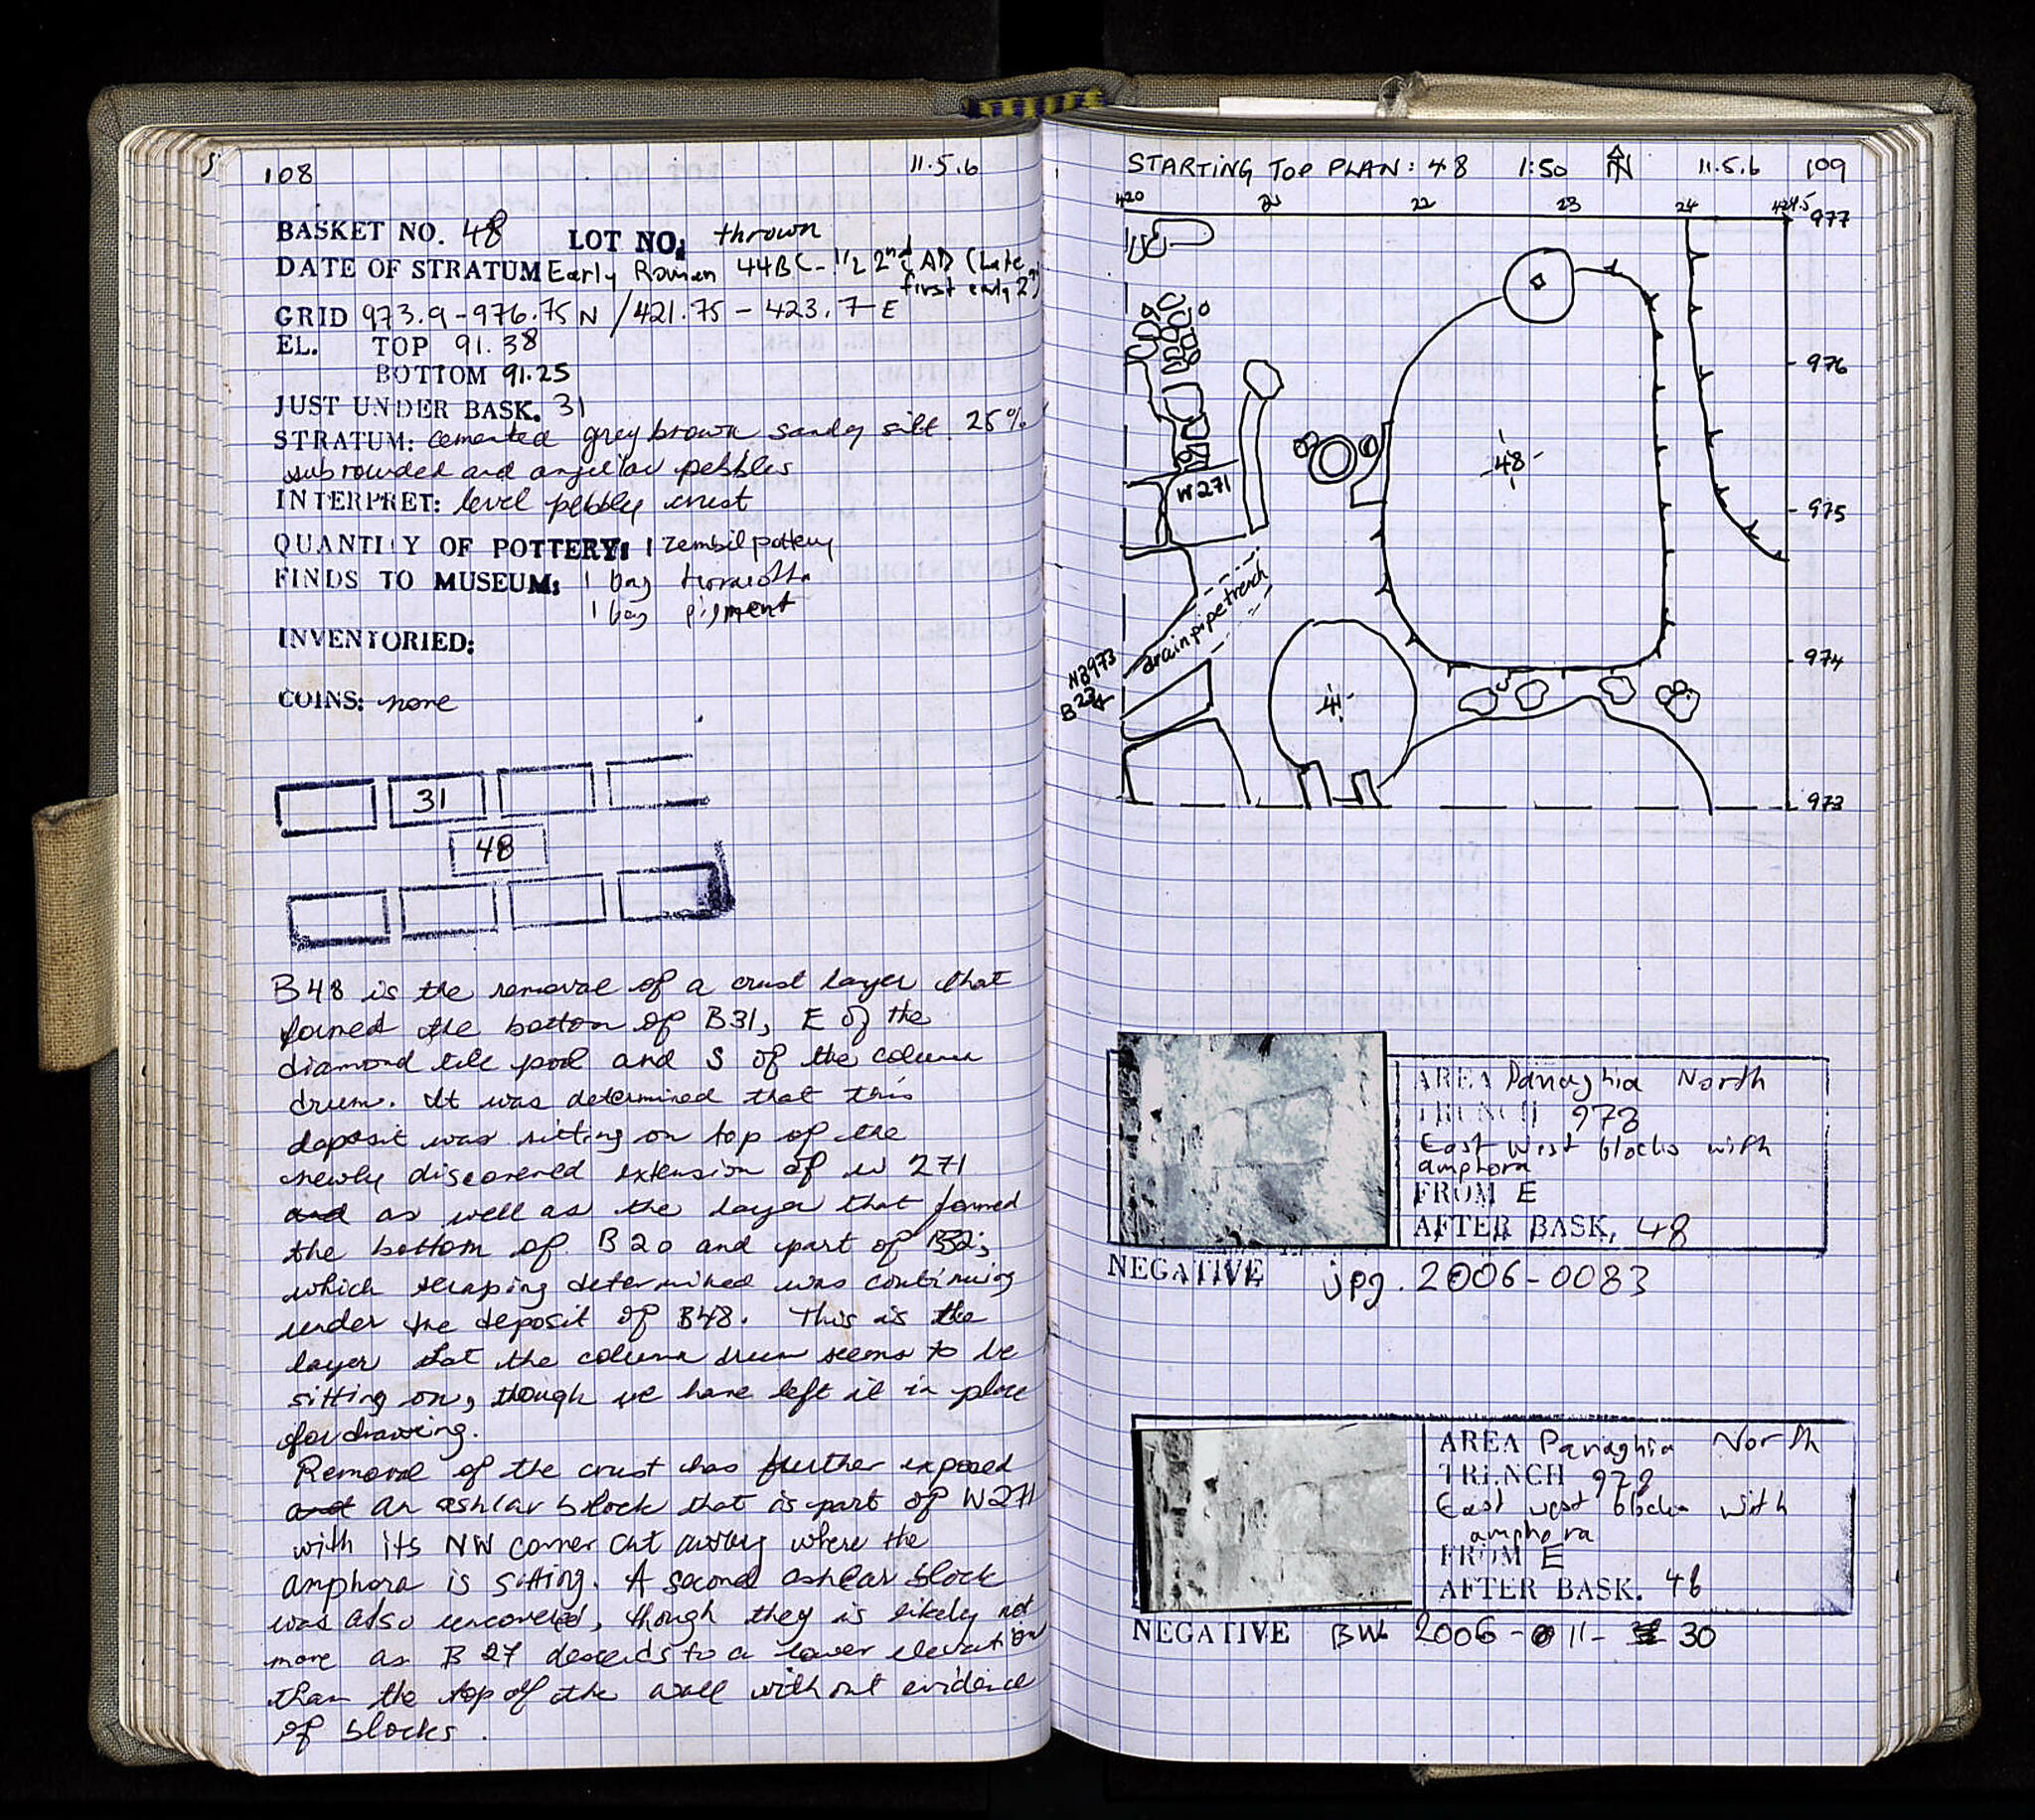 108 11.5.6
BASKET NO. 48 LOT NO: thrown
DATE OF STRATUM Early Roman 44BC - 1/2 2nd c AD (late
first early 2)
GRID 973.9-976.75 N / 421.75 - 423.7 E
EL. TOP 91.38
BOTTOM 91.25
JUST UNDER BASK. 31
STRATUM: cemented grey brown sandy silt 25%
subrounded and angular pebbles
INTERPRET: level pebbly crust
QUANTITY OF POTTERY: 1 zembil pottery
FINDS TO MUSEUM: 1 bag terracotta
1 bag pigment
INVENTORIED:
COINS: none
31
48
B48 is the removal of a crust layer that
formed the bottom of B31, E of the
diamond tile pool and S of the column
drum. It was determined that this
deposit was sitting on top of the
newly discovered extension of w 271
and as well as the layer that formed
the bottom of B20 and part of B32;
which scraping determined was continuing
under the deposit of B48. This is the
layer that the column drum seems to be
sitting on, though we have left it in place
for drawing.
Removal of the crust has further exposed
and an ashlar block that is part of W271
with its NW corner cut away where the
amphora is sitting. A second ashlar block
was also uncovered, though they is likely not
more as B 27 descends to a lower elevation
than the top of the wall without evidence
of blocks.
STARTING TOP PLAN: 48 1:50 N 11.5.6 109
420 21 22 23 24 424.5 977
976
48
W271
975
drainpipe trench
974
N8973
B
41
973
AREA Panaghia North
TRENCH 973
East West blocks with
amphora
FROM E
AFTER BASK. 48
NEGATIVE jpg. 2006-0083
AREA Panaghia North
TRENCH 973
East west blocks with
amphora
FROM E
AFTER BASK. 48
NEGATIVE BW 2006-011- 30